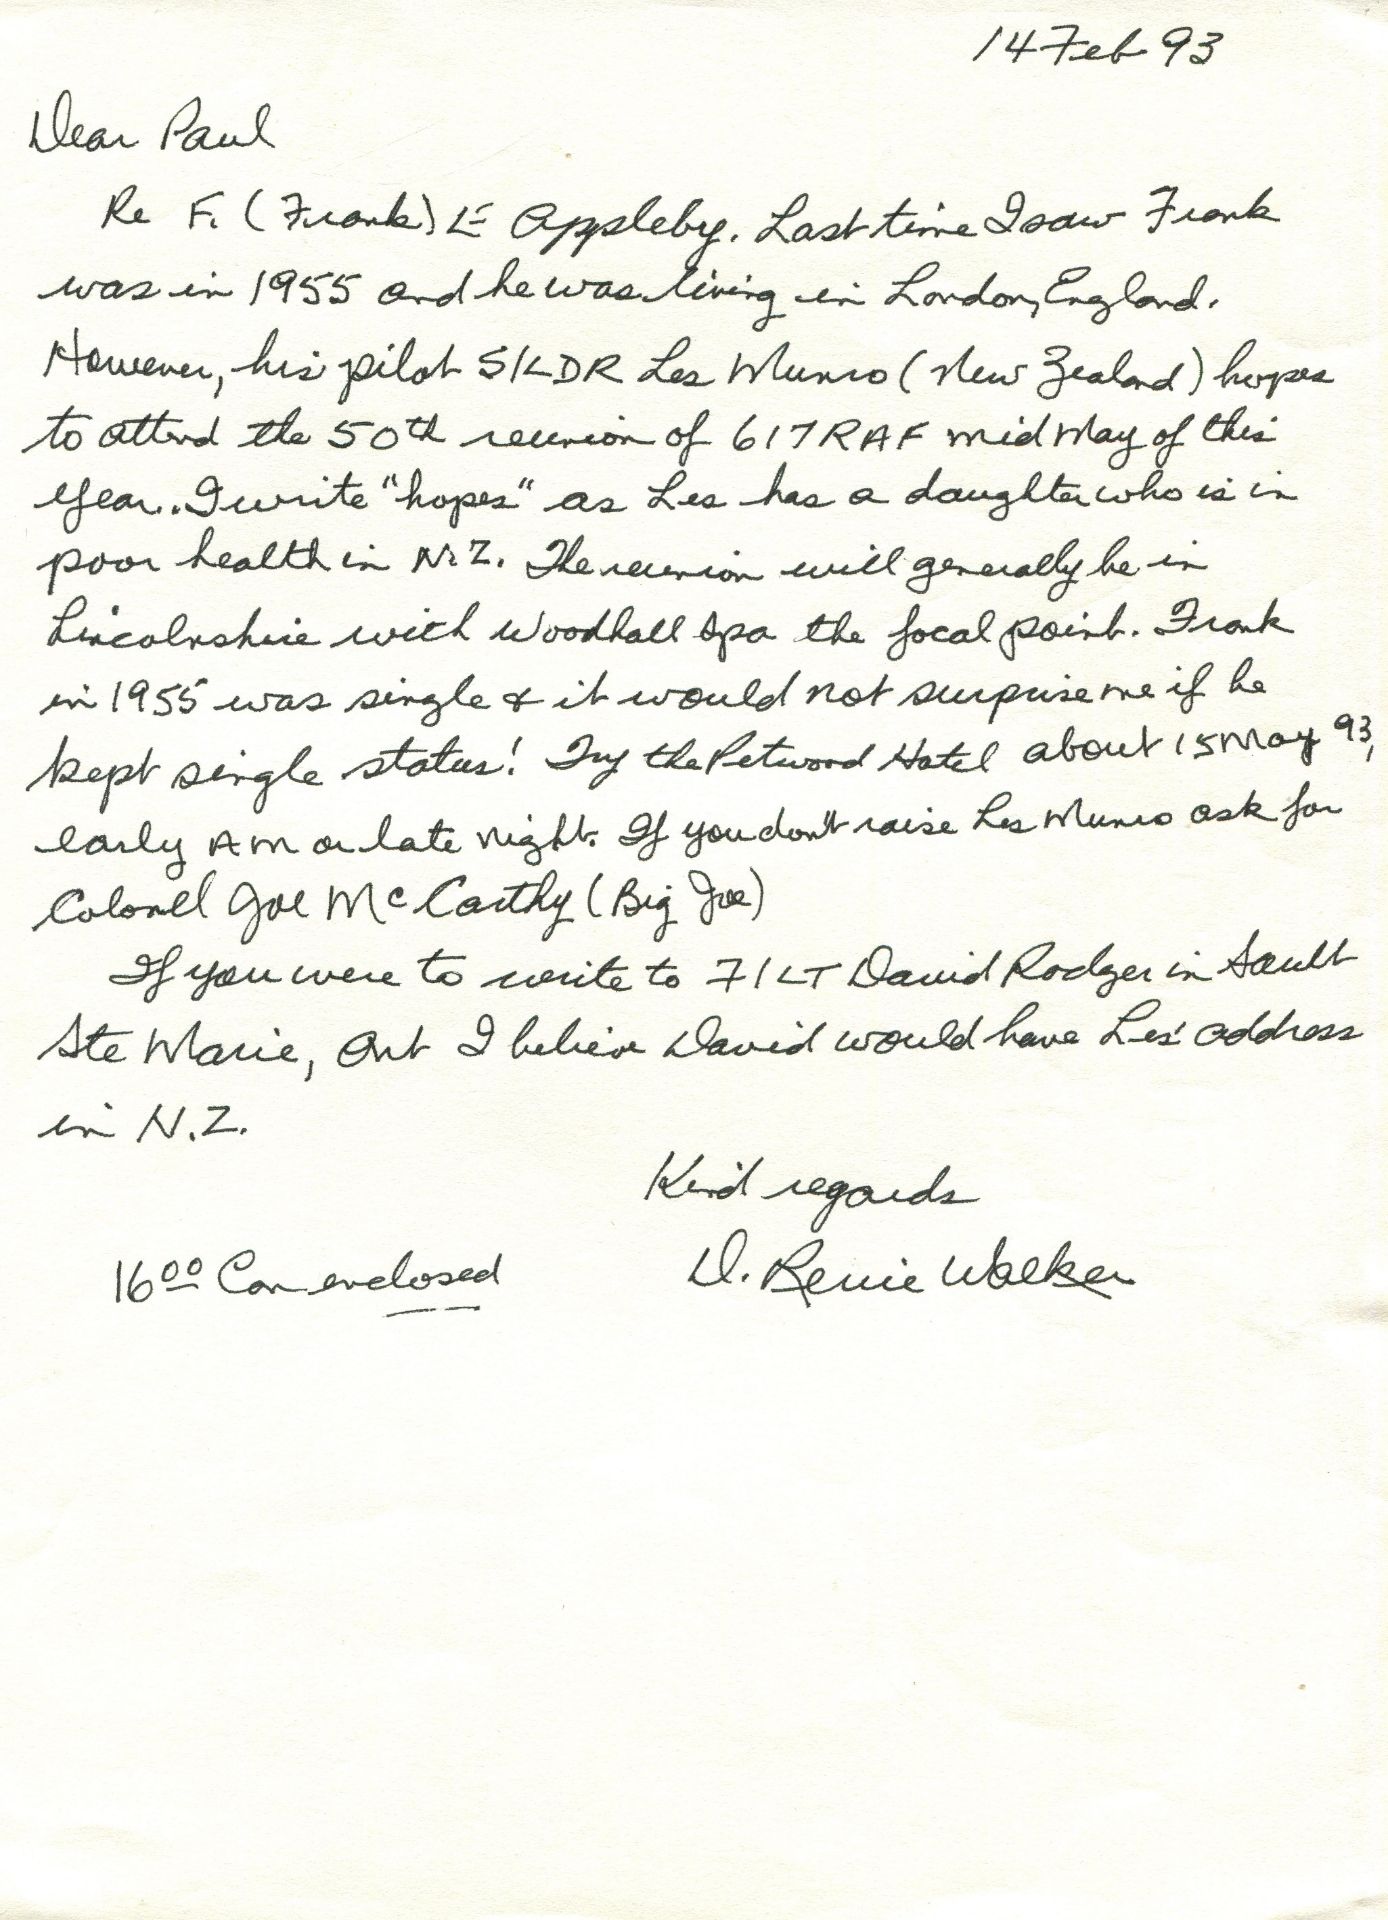 14 Feb 93
Dear Paul
Re F. (Frank) E Appleby. Last time I saw Frank
was in 1955 and he was living in London, England.
However, his pilot S/LDR Les Munro (New Zealand) hopes
to attend the 50th reunion of 617 RAF mid May of this
year.. I write "hopes" as Les has a daughter who is in
poor health in N.Z. The reunion will generally be in
Lincolnshire with Woodhall Spa the focal point. Frank
in 1955 was single & it would not surprise me if he
kept single status! Try the Petwood Hotel about 15 May 93,
early AM or late night. If you don't raise Les Munro ask for
Colonel Joe McCarthy (Big Joe)
If you were to write to F/LT David Rodger in Sault
Ste Marie, Ont I believe David would have Les' address
in N.Z.
Kind regards
16 00 Can enclosed D. Revie Walker